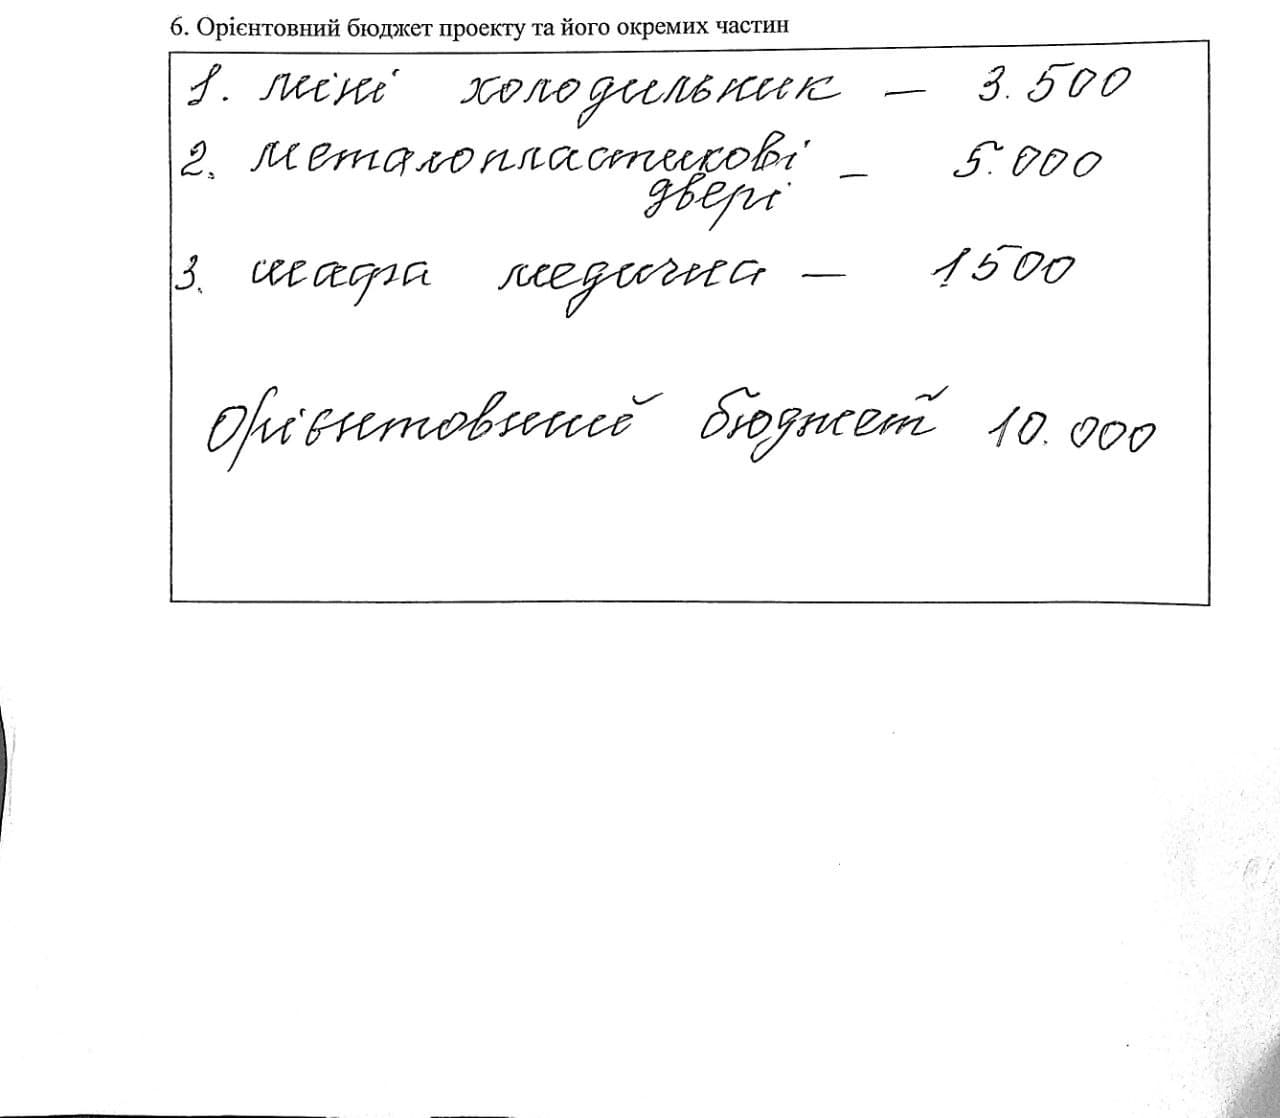 6. Орієнтовний бюджет проекту та його окремих частин
1. міні холодильник — 3.500
2. металопластикові — 5.000
двері
3. шафа медична — 1500
Орієнтовний бюджет 10.000